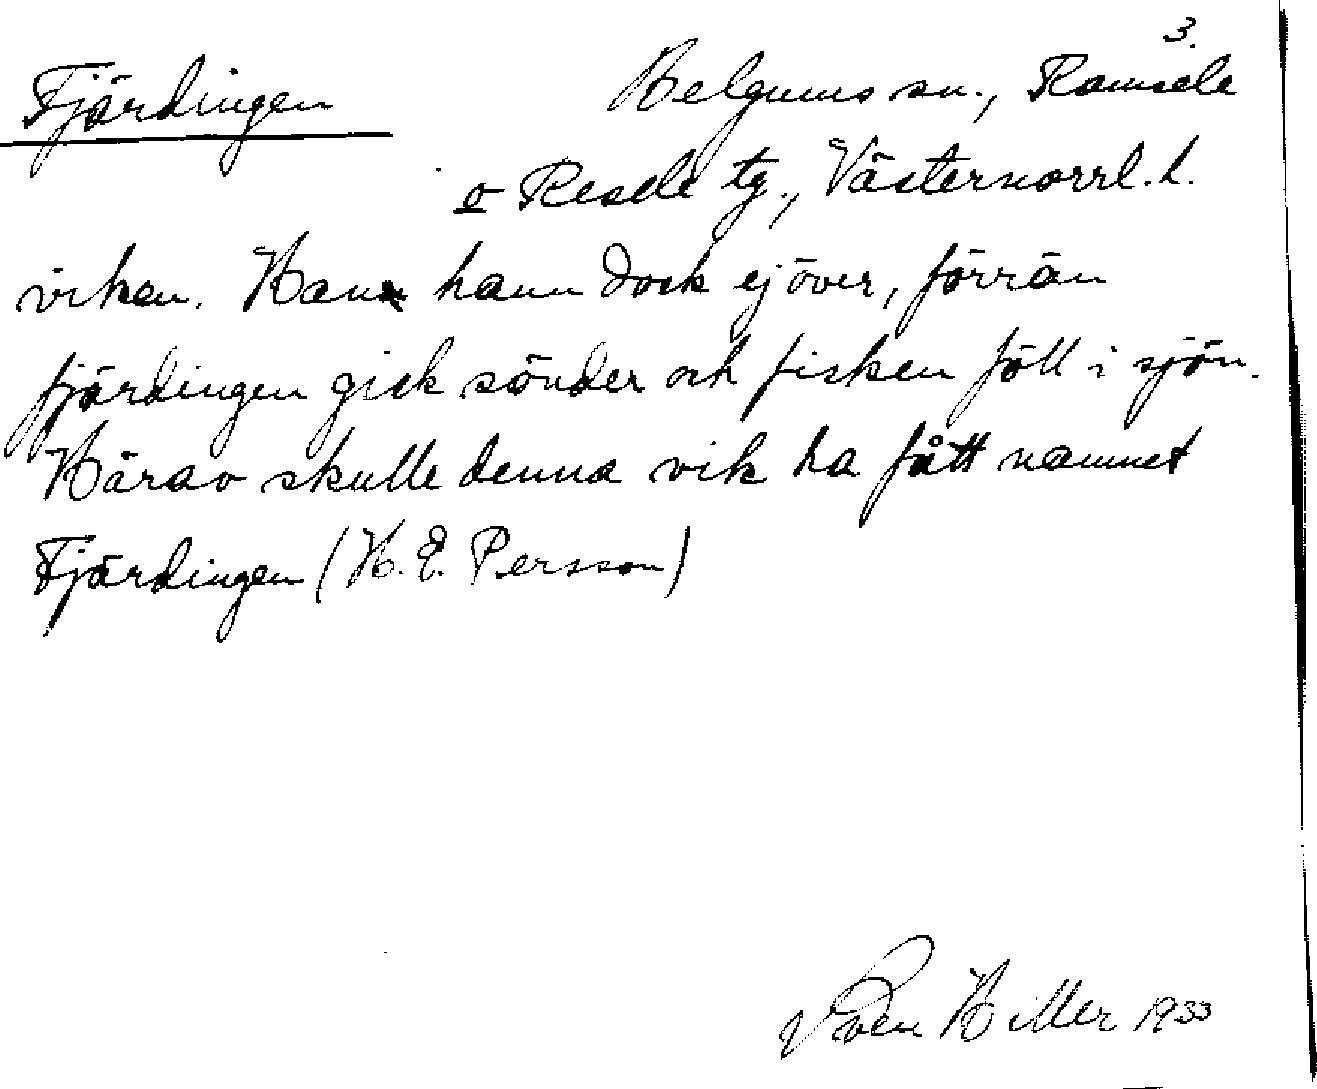 3.
Fjärdingen Helgums sn., Ramsele
o Resele tg., Västernorrl. l.
viken. Han hann dock ej över, förrän
fjärdingen gick sönder och fisken föll i sjön.
Härav skulle denna vik ha fått namnet
Fjärdingen (H. E. Persson)
Sven Hiller 1933